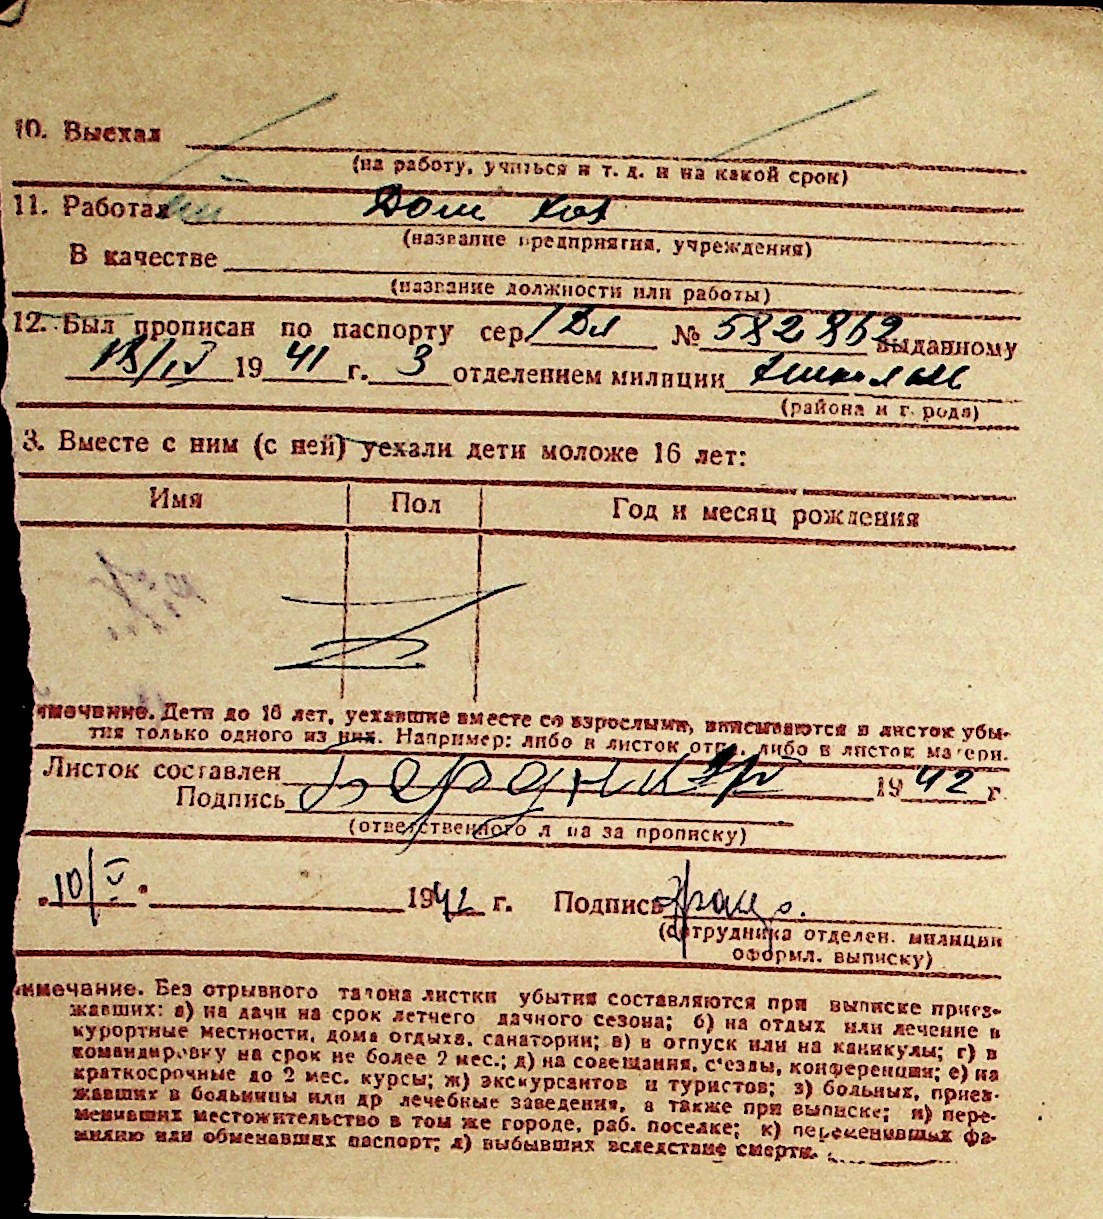 10. Выехал
(на работу, учиться и т. д. и на какой срок)
11. Работал Дом хоз
(название предприятия, учреждения)
В качестве
(название должности или работы)
12. Был прописан по паспорту сер. № 582862 выданному
18/IV 1941 г. 3 отделением милиции
(района и города)
3. Вместе с ним (с ней) уехали дети моложе 16 лет:
Имя Пол Год и месяц рождения
имечание. Дети до 16 лет, уехавшие вместе со взрослыми, вписываются в листок убы-
тия только одного из них. Например: либо в листок отца, либо в листок матери.
Листок составлен 1942 г.
Подпись
(ответственного лица за прописку)
„10/V" 1942 г. Подпись
(сотрудника отделен. милиции
оформл. выписку)
имечание. Без отрывного талона листки убытия составляются при выписке приез-
жавших: а) на дачи на срок летнего дачного сезона; б) на отдых или лечение в
курортные местности, дома отдыха, санатории; в) в отпуск или на каникулы; г) в
командировку на срок не более 2 мес.; д) на совещания, с'езды, конференции; е) на
краткосрочные до 2 мес. курсы; ж) экскурсантов и туристов; з) больных, приез-
жавших в больницы или др лечебные заведения, а также при выписке; и) пере-
менивших местожительство в том же городе, раб. поселке; к) переменивших фа-
милию или обменявших паспорт; л) выбывших вследствие смерти.